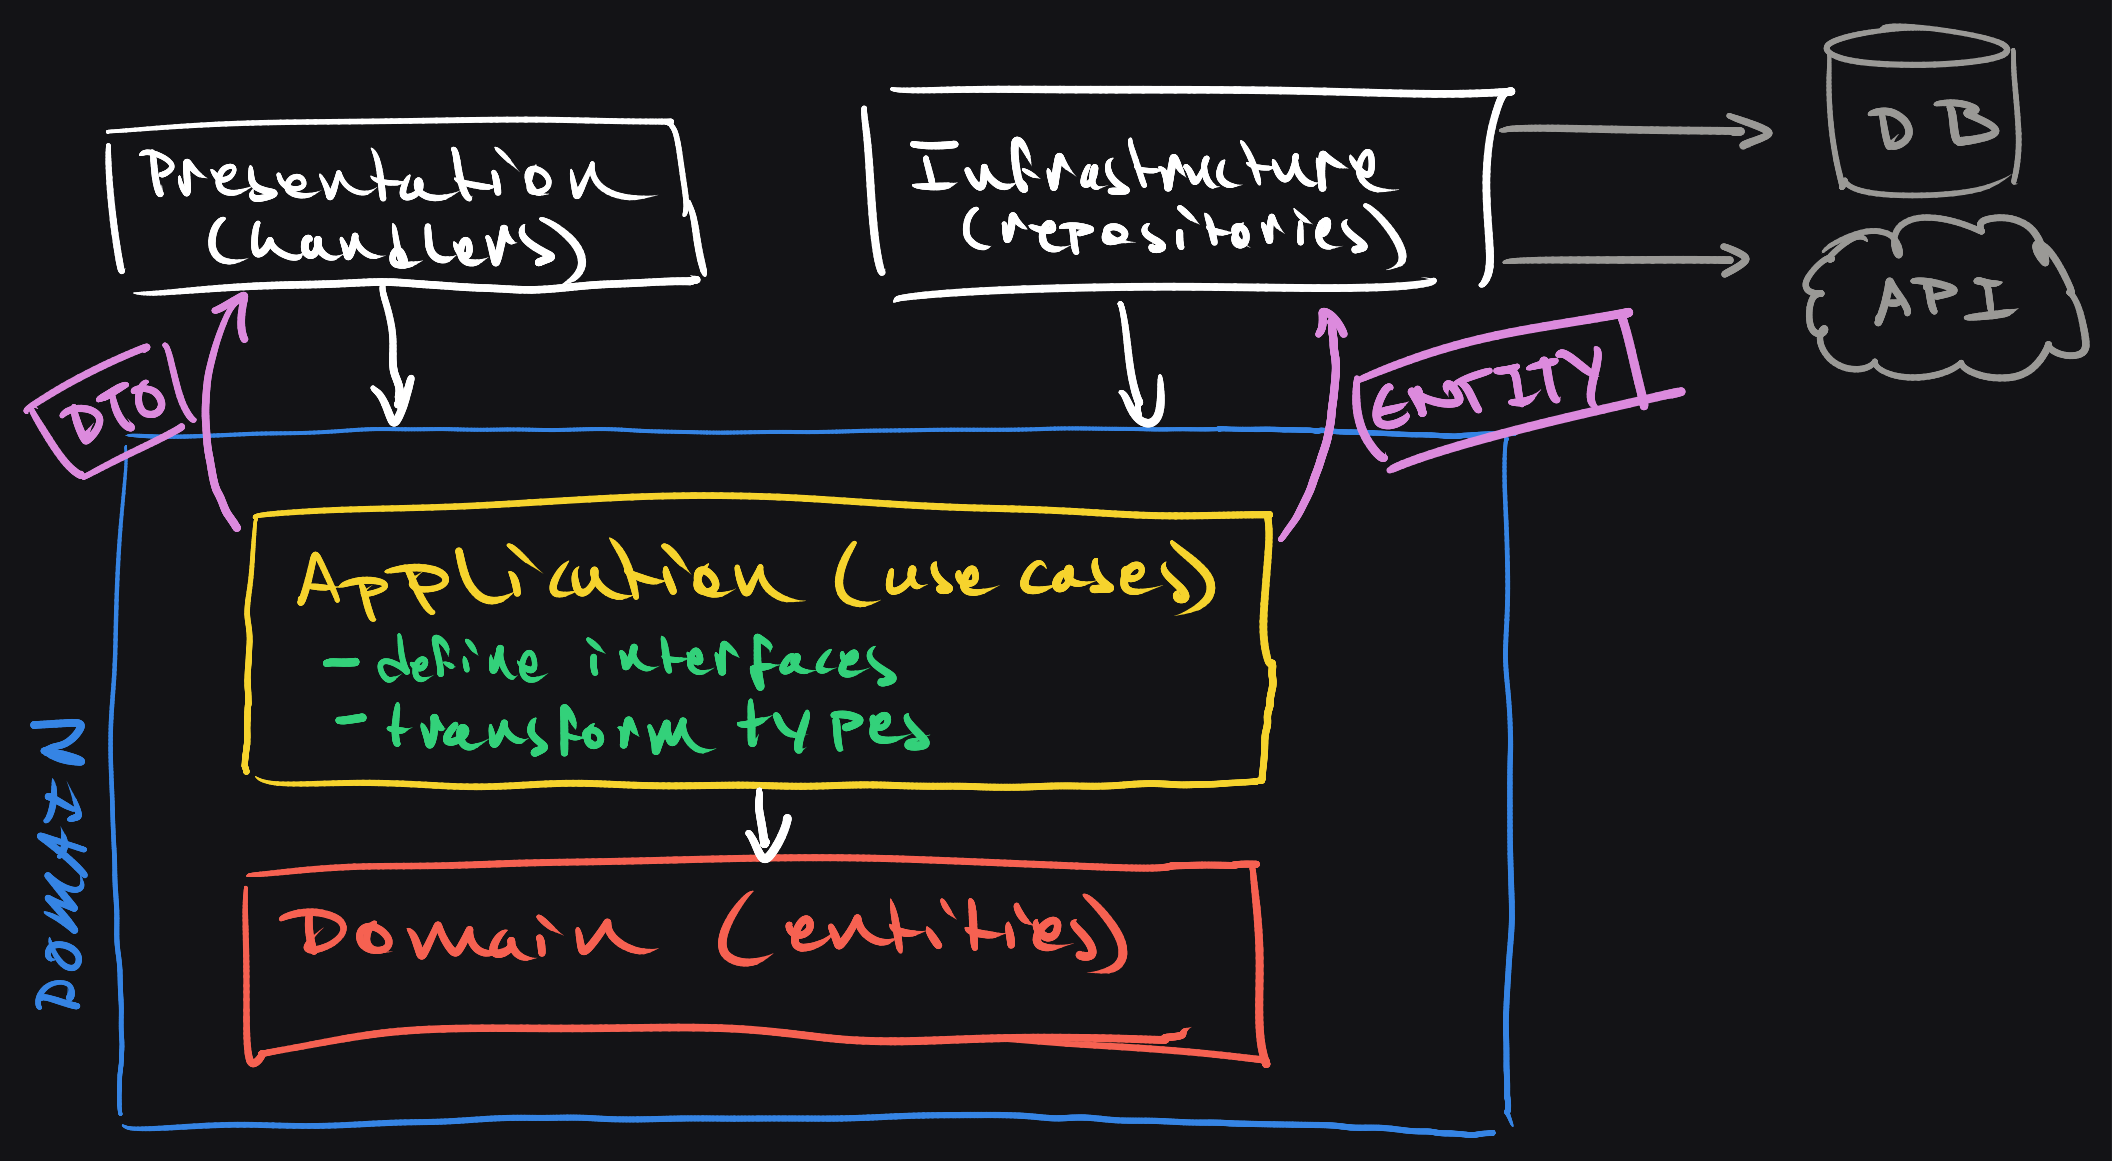 Presentation
(handlers)
Infrastructure
(repositories)
DB
API
DTO
ENTITY
Application (use cases)
- define interfaces
- transform types
DOMAIN
Domain (entities)